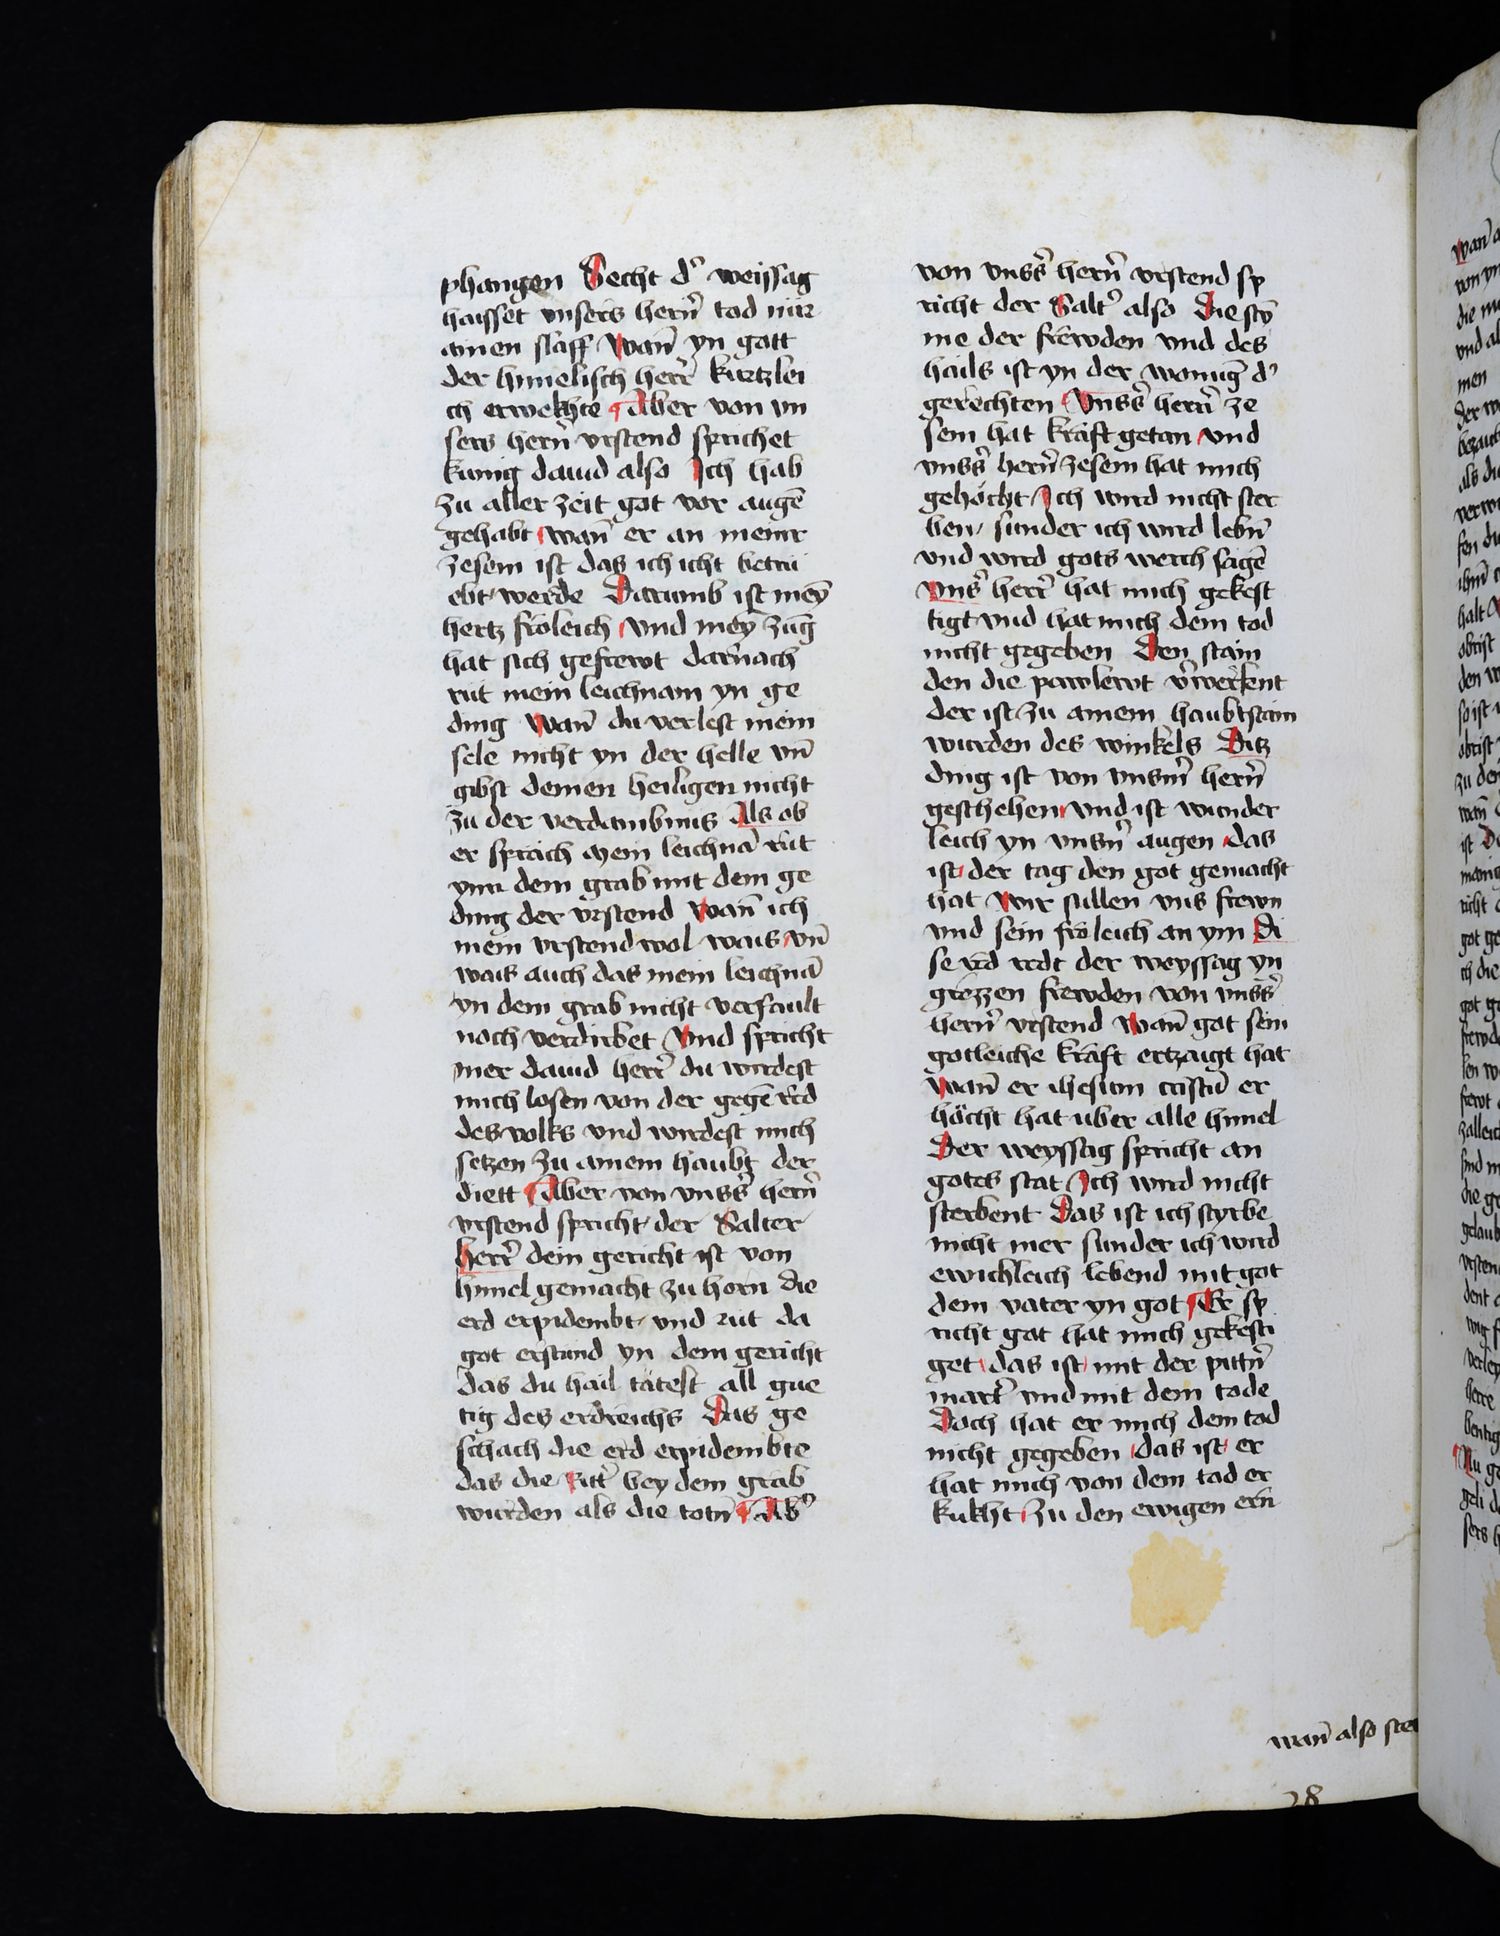 phangen Secht d' weissag
haisset unsers herñ tod nur
ainen slaff Wañ yn gott
der hymelisch herr̄ kurtzlei
ch erwekhte ¶ Aber von un
sers herñ vrstend sprichet
kunig dauid also Ich hab
zu aller zeit got vor augē
gehabt wañ er an meinr
zesem ist das ich icht betru
ebt werde Darumb ist mey̅
hertz fröleich vnd mey̅ zūg
hat sich gefrewt darnach
rut mein leichnam yn ge
ding Wañ du verlest mein
sele nicht yn der helle vñ
gibst deinen heiligen nicht
zu der verdambnus Als ob
er sprach Mein leichnā rut
ynn dem grab mit dem ge
ding der vrstend Wañ ich
mein vrstend wol wais vñ
wais auch das mein leichnā
yn dem grab nicht verfault
noch verdirbet Vnd spricht
mer dauid herr̄ du wirdest
mich losen von der gegē red
des volks vnd wirdest mich
setzen zu ainem haubt der
diett ¶ Aber von vnsers̄ herñ
vrstend spricht der Salter
Herr̄ dein gericht ist von
himel gemacht zu horn die
erd erpidembt vnd rut da
got erstund yn dem gericht
das du hail tätest all gue
tig des erdreichs Das ge
schach die erd erpidembte
das die Ritt' bey dem grab
wurden als die totñ ¶ Ab'
von vnss's herñ vrstend sp
richt der Salt' also Die stȳ
me der frewden vnd des
hails ist yn der wonūg d'
gerechten Vnss's herñ ze
sem hat kraft getan vnd
vnss's herñ zesem hat mich
gehöcht Ich wird nicht ster
ben sunder ich wird lebñ
vnd wird gots werch sagē
Vns' herr̄ hat mich gekest
tigt vnd hat mich dem tod
nicht gegeben Den stain
den die pawlewt v'werkent
der ist zu ainem haubtstain
wurden des winkels Ditz
ding ist von vnserm̄ herñ
geschehen vnd ist wunder
leich yn vnserñ augen das
ist der tag den got gemacht
hat Wir sullen vns frewn
vnd sein fröleich an ym Di
se red redt der weyssag yn
grozzen frewden von vnss's
herñ vrstend Wañ got sein
gotleiche kraft ertzaigt hat
Wañ er ihesum cristū er
höcht hat uber alle himel
Der weyssag spricht an
gotes stat Ich wird nicht
sterbent Das ist ich styrbe
nicht mer sunder ich wird
ewichleich lebend mit got
dem vater yn got ¶ Er sp
richt got hat mich gekesti
get das ist mit der pittñ
mart' vnd mit dem tode
Doch hat er mich dem tod
nicht gegeben das ist er
hat mich von dem tod er
kukht zu den ewigen ern
wañ also ste
28